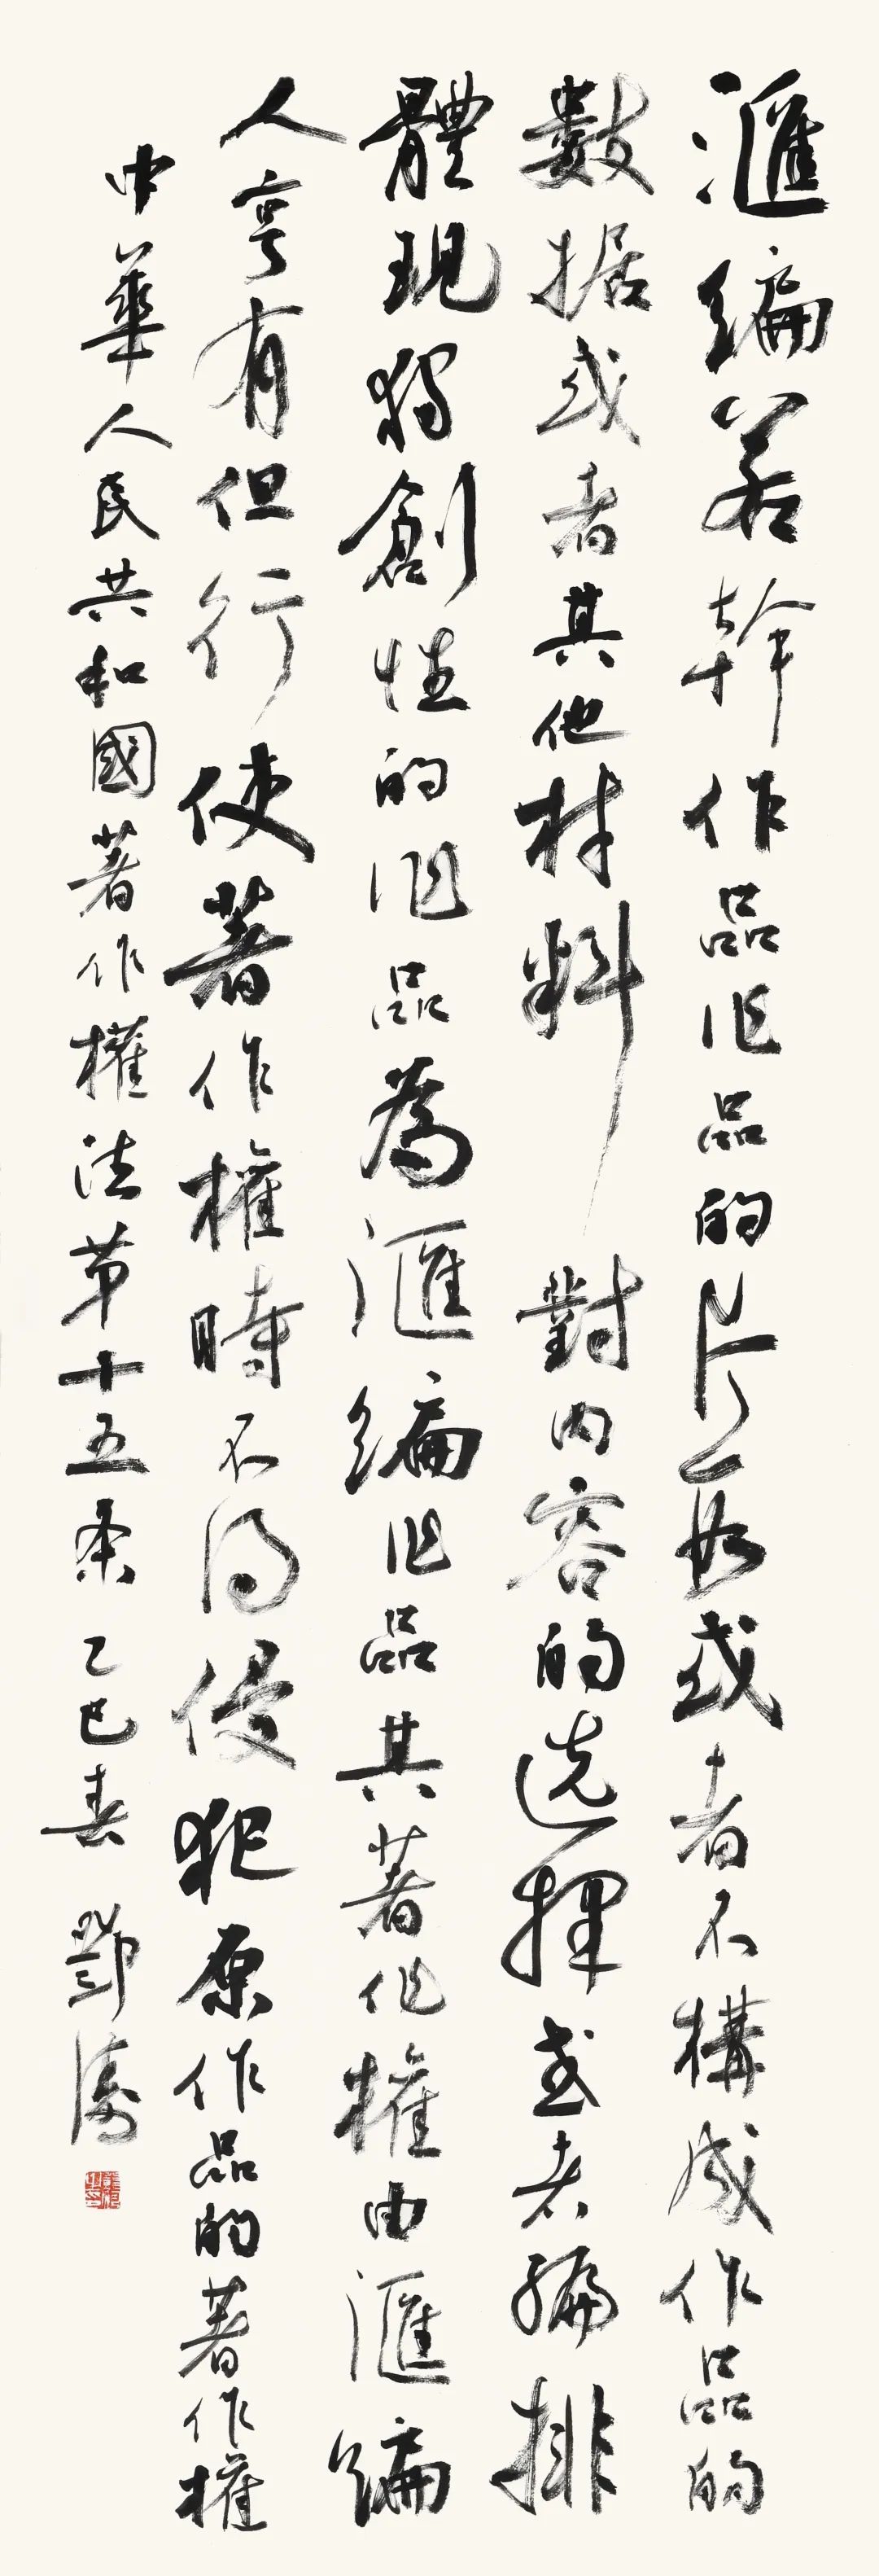 匯編若幹作品作品的片段或者不構成作品的
數据或者其他材料對内容的选擇或者編排
體現獨創性的作品為匯編作品其著作權由匯編
人享有但行使著作權時不得侵犯原作品的著作權
中華人民共和國著作權法第十五条乙巳春鄧濤